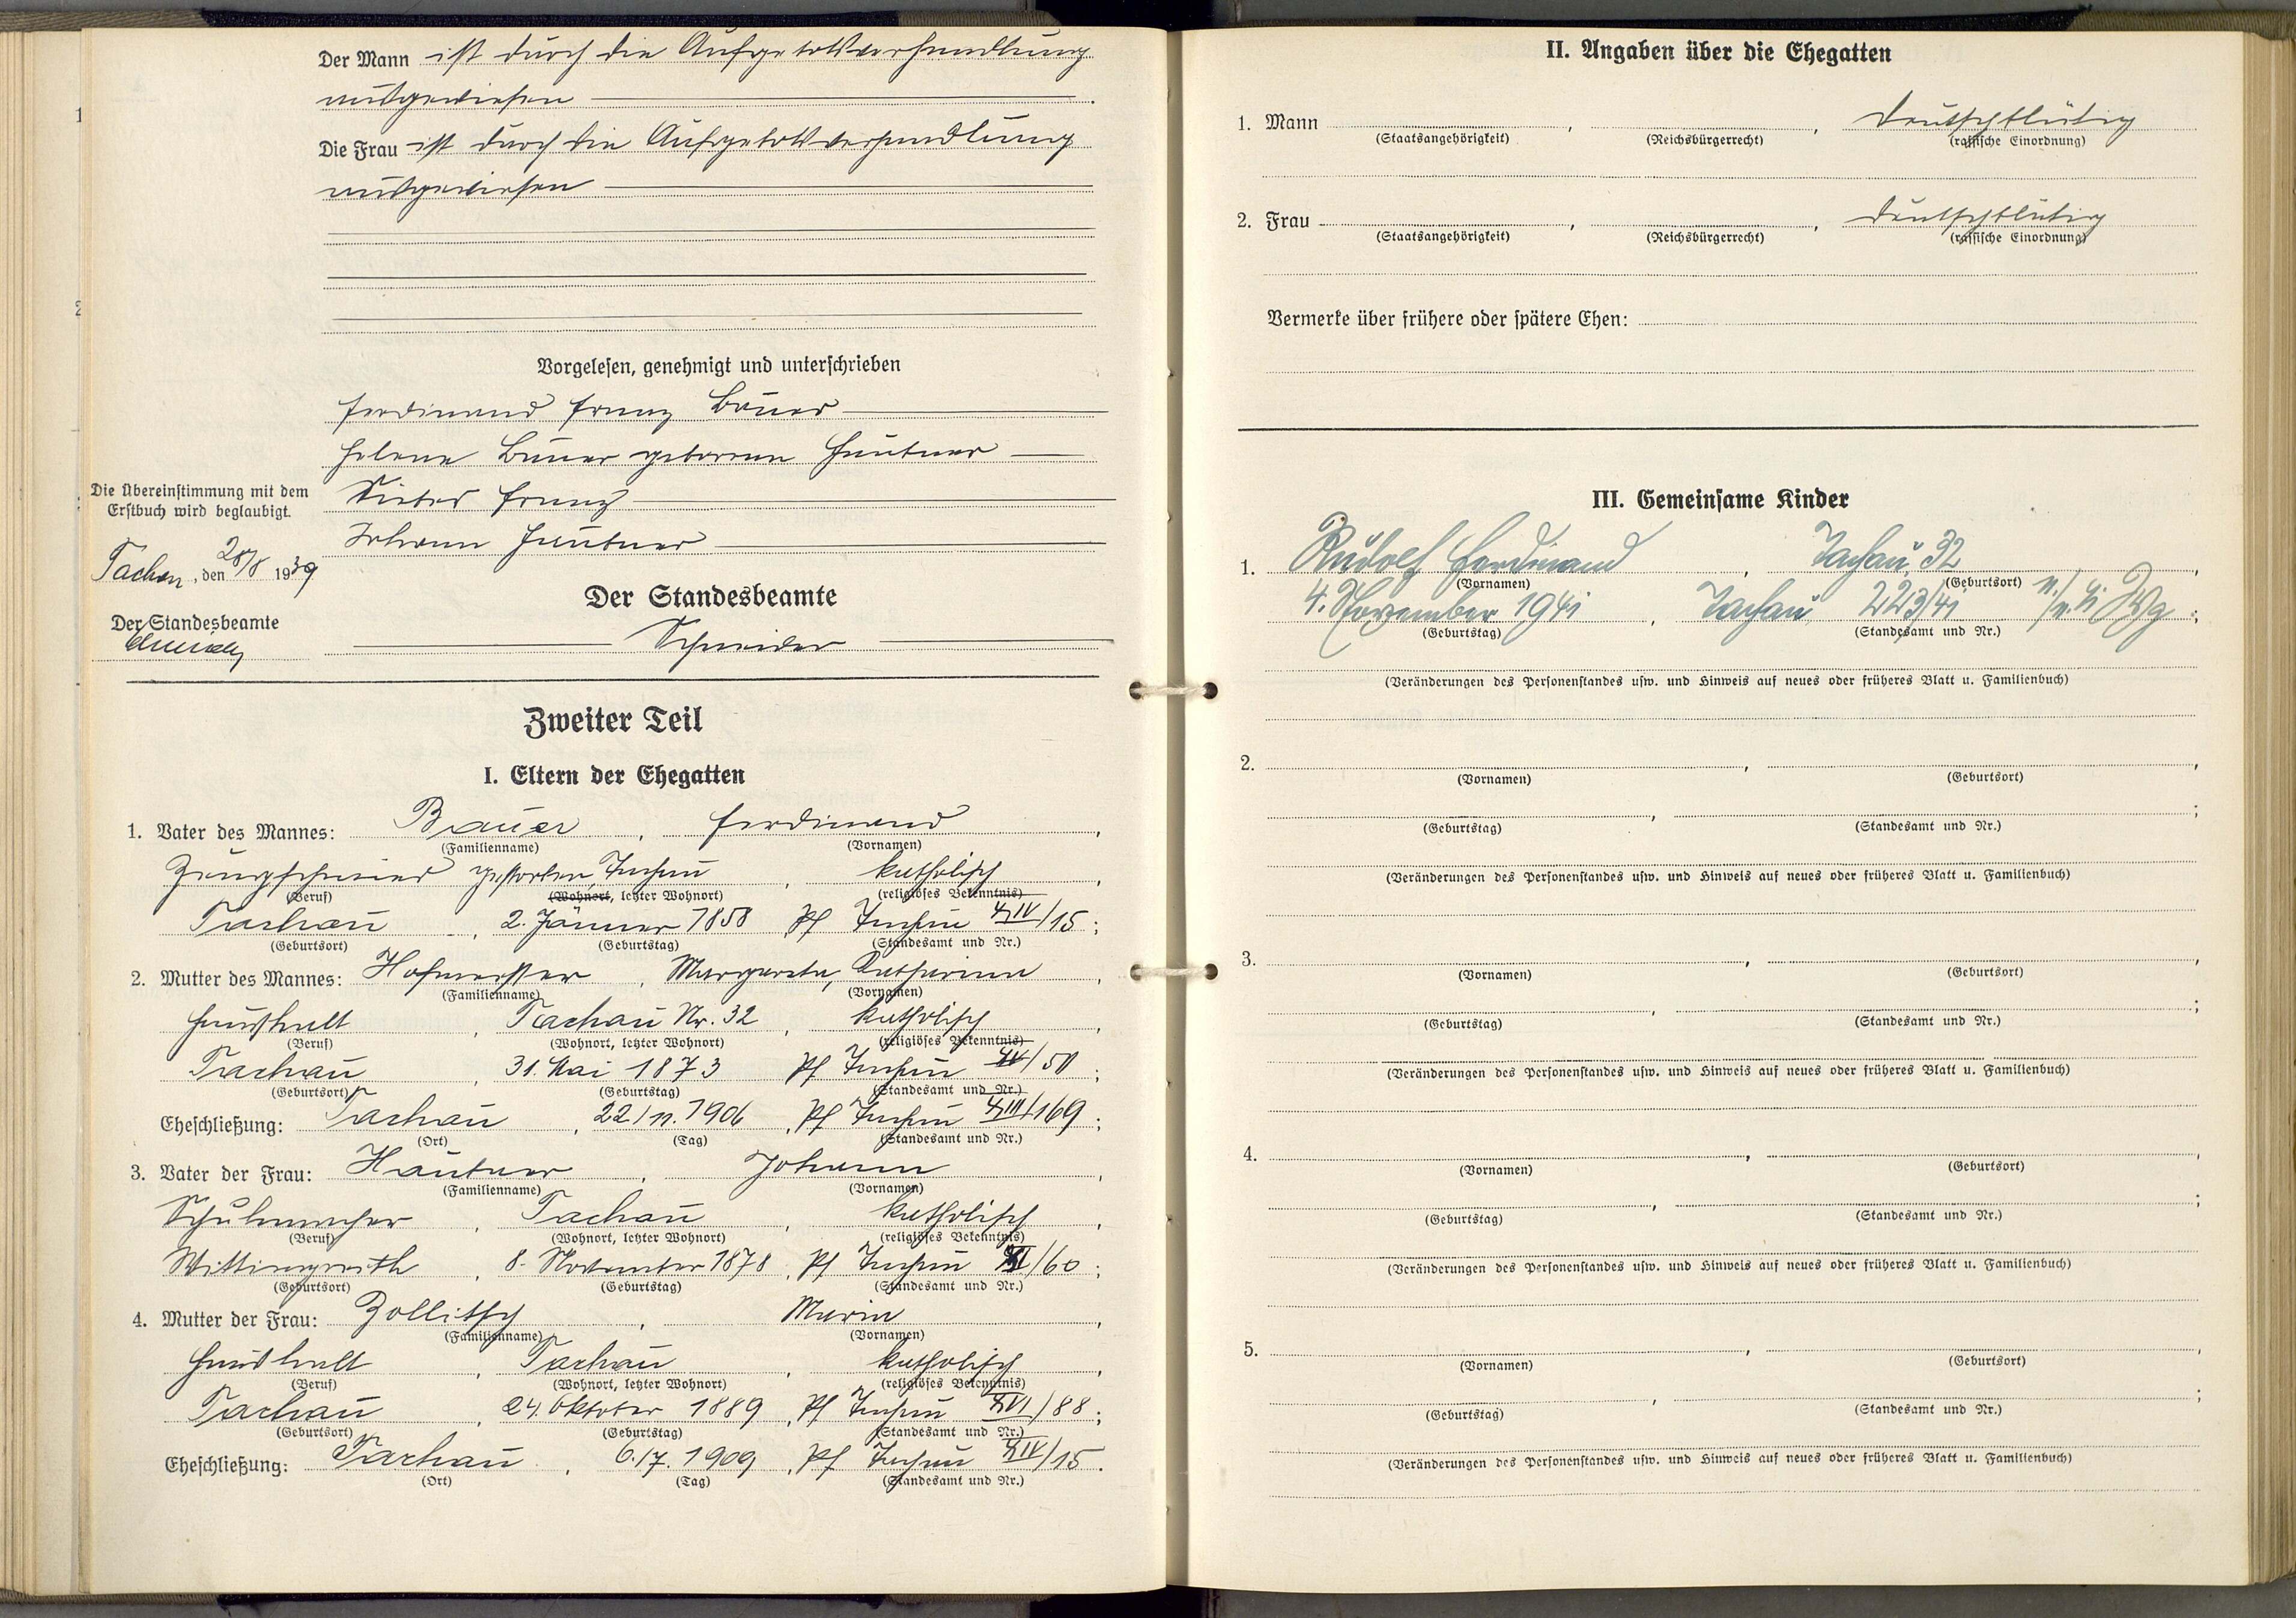 Der Mann ist durch die Aufgebotsverhandlung
ausgewiesen
Die Frau ist durch die Aufgebotsverhandlung
ausgewiesen
Vorgelesen, genehmigt und unterschrieben
Ferdinand Franz Bauer
Helene Bauer geborene Hautner
Franz
Johann Hautner
Die Übereinstimmung mit dem
Erstbuch wird beglaubigt.
Tachau, den 28/8 1939
Der Standesbeamte
Der Standesbeamte
Schneider
Zweiter Teil
I. Eltern der Ehegatten
1. Vater des Mannes: Bauer, Ferdinand,
(Familienname) (Vornamen)
Zeugschmied gestorben, Tachau, katholisch,
(Beruf) (Wohnort, letzter Wohnort) (religiöses Bekenntnis)
Tachau, 2. Jänner 1858, Pf Tachau /15;
(Geburtsort) (Geburtstag) (Standesamt und Nr.)
2. Mutter des Mannes: Hofmeister, Margareta, Katharina,
(Familienname) (Vornamen)
Haushalt, Tachau Nr. 32, katholisch,
(Beruf) (Wohnort, letzter Wohnort) (religiöses Bekenntnis)
Tachau, 31. Mai 1873 Pf Tachau /50;
(Geburtsort) (Geburtstag) (Standesamt und Nr.)
Eheschließung: Tachau, 22/11. 1906, Pf Tachau /169;
(Ort) (Tag) (Standesamt und Nr.)
3. Vater der Frau: Hautner, Johann,
(Familienname) (Vornamen)
Schuhmacher, Tachau, katholisch,
(Beruf) (Wohnort, letzter Wohnort) (religiöses Bekenntnis)
Wittingreith, 8. November 1878, Pf Tachau /60;
(Geburtsort) (Geburtstag) (Standesamt und Nr.)
4. Mutter der Frau: Zollitsch, Maria,
(Familienname) (Vornamen)
Haushalt, Tachau, katholisch,
(Beruf) (Wohnort, letzter Wohnort) (religiöses Bekenntnis)
Tachau, 24. Oktober 1889, Pf Tachau /88;
(Geburtsort) (Geburtstag) (Standesamt und Nr.)
Eheschließung: Tachau, 6./7. 1909, Pf Tachau /15.
(Ort) (Tag) (Standesamt und Nr.)
II. Angaben über die Ehegatten
1. Mann , , deutschblütig
(Staatsangehörigkeit) (Reichsbürgerrecht) (rassische Einordnung)
2. Frau , , deutschblütig
(Staatsangehörigkeit) (Reichsbürgerrecht) (rassische Einordnung)
Vermerke über frühere oder spätere Ehen:
III. Gemeinsame Kinder
1. Rudolf Ferdinand, Tachau 32,
(Vornamen) (Geburtsort)
4. November 1941, Tachau 223/41;
(Geburtstag) (Standesamt und Nr.)
(Veränderungen des Personenstandes usw. und Hinweis auf neues oder früheres Blatt u. Familienbuch)
2. , ,
(Vornamen) (Geburtsort)
, ;
(Geburtstag) (Standesamt und Nr.)
(Veränderungen des Personenstandes usw. und Hinweis auf neues oder früheres Blatt u. Familienbuch)
3. , ,
(Vornamen) (Geburtsort)
, ;
(Geburtstag) (Standesamt und Nr.)
(Veränderungen des Personenstandes usw. und Hinweis auf neues oder früheres Blatt u. Familienbuch)
4. , ,
(Vornamen) (Geburtsort)
, ;
(Geburtstag) (Standesamt und Nr.)
(Veränderungen des Personenstandes usw. und Hinweis auf neues oder früheres Blatt u. Familienbuch)
5. , ,
(Vornamen) (Geburtsort)
, ;
(Geburtstag) (Standesamt und Nr.)
(Veränderungen des Personenstandes usw. und Hinweis auf neues oder früheres Blatt u. Familienbuch)